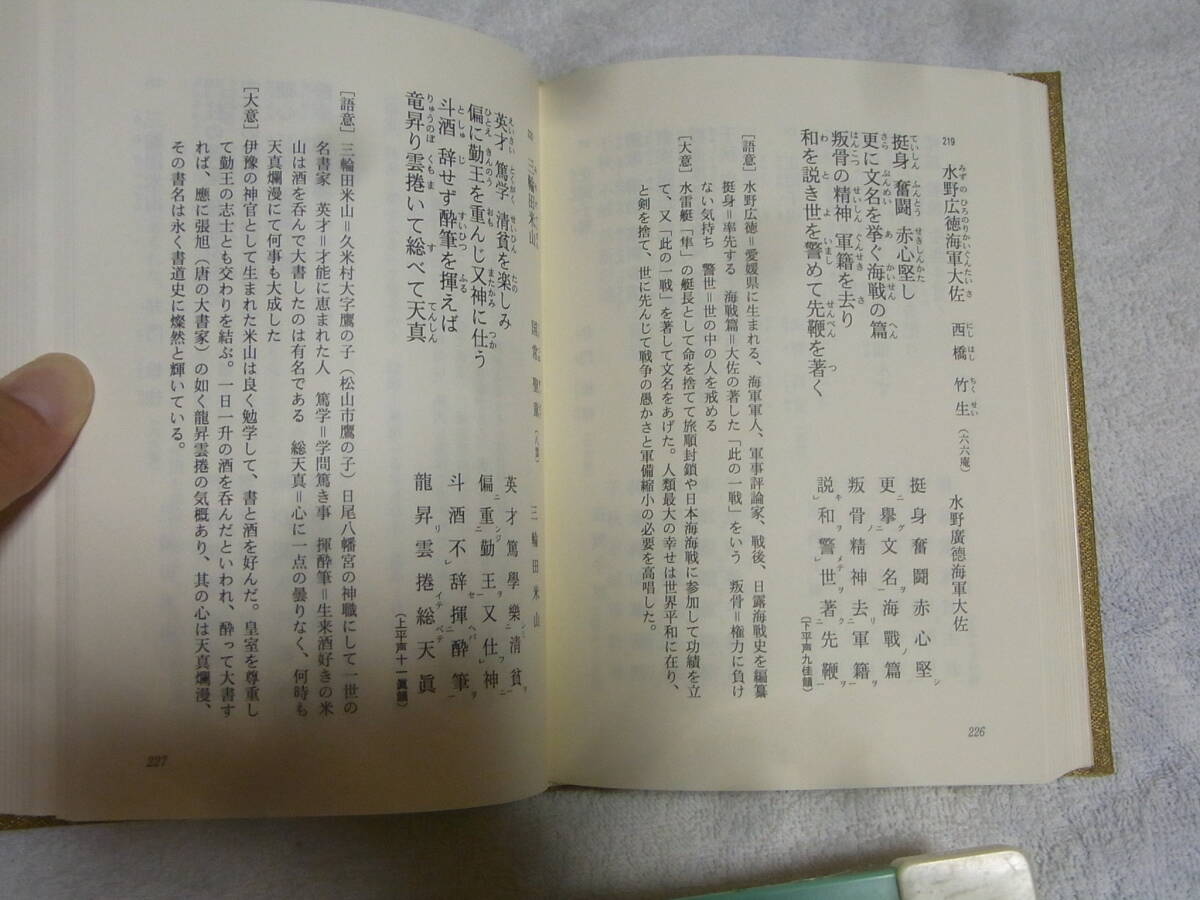 219 水野広徳海軍大佐 西橋竹生（六六庵）
挺身 奮闘 赤心堅し
更に文名を挙ぐ海戦の篇
叛骨の精神 軍籍を去り
和を説き世を警めて先鞭を著く
水野廣徳海軍大佐
挺身奮闘赤心堅シ
更ニ擧グ文名ヲ海戰ノ篇
叛骨ノ精神去リ軍籍ヲ
説キ和ヲ警メテ世ヲ著ク先鞭ヲ
（下平声九佳韻）
［語意］水野広徳＝愛媛県に生まれる、海軍軍人、軍事評論家、戦後、日露海戦史を編纂
挺身＝率先する 海戦篇＝大佐の著した「此の一戦」をいう 叛骨＝権力に負け
ない気持ち 警世＝世の中の人を戒める
［大意］水雷艇「隼」の艇長として命を捨てて旅順封鎖や日本海海戦に参加して功績を立
て、又「此の一戦」を著して文名をあげた。人類最大の幸せは世界平和に在り、
と剣を捨て、世に先んじて戦争の愚かさと軍備縮小の必要を高唱した。
226
三輪田米山
英才 篤学 清貧を楽しみ
偏に勤王を重んじ又神に仕う
斗酒 辞せず酔筆を揮えば
竜昇り雲捲いて総べて天真
三輪田米山
英才篤學樂清貧
偏重勤王又仕神
斗酒不辞揮酔筆
龍昇雲捲総天眞
（上平声十一眞韻）
［語意］三輪田米山＝久米村大字鷹の子（松山市鷹の子）日尾八幡宮の神職にして一世の
名書家 英才＝才能に恵まれた人 篤学＝学問篤き事 揮酔筆＝生来酒好きの米
山は酒を呑んで大書したのは有名である 総天真＝心に一点の曇りなく、何時も
天真爛漫にて何事も大成した
［大意］伊豫の神官として生まれた米山は良く勉学して、書と酒を好んだ。皇室を尊重し
て勤王の志士とも交わりを結ぶ。一日一升の酒を呑んだといわれ、酔って大書す
れば、應に張旭（唐の大書家）の如く龍昇雲捲の気概あり、其の心は天真爛漫、
その書名は永く書道史に燦然と輝いている。
227